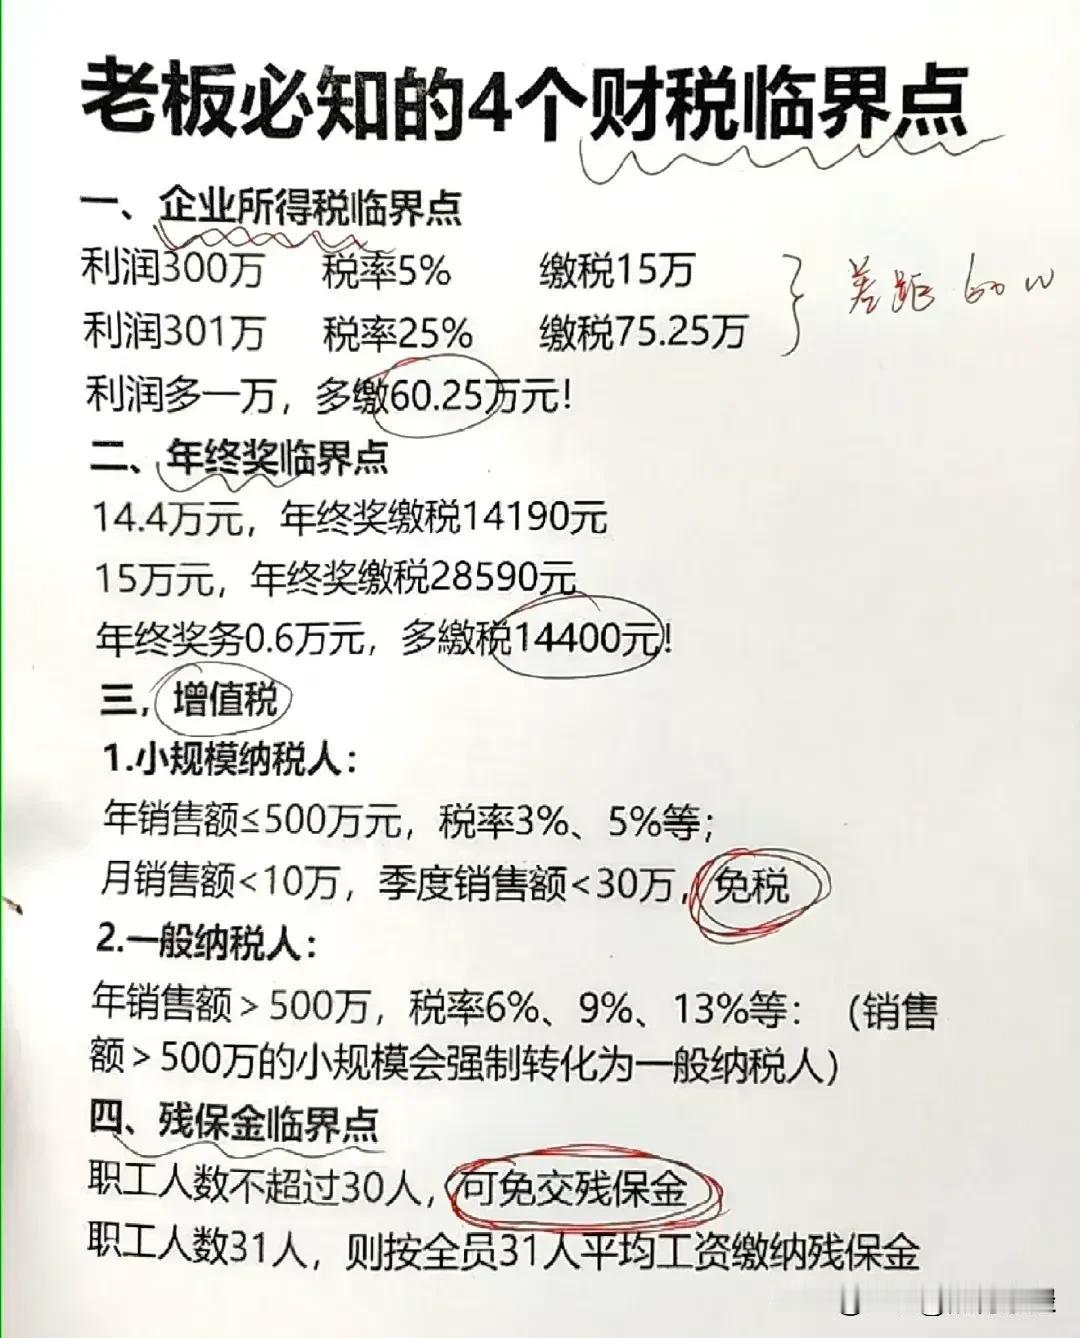 老板必知的4个财税临界点
一、企业所得税临界点
利润300万 税率5% 缴税15万
利润301万 税率25% 缴税75.25万
差距 60w
利润多一万，多缴60.25万元！
二、年终奖临界点
14.4万元，年终奖缴税14190元
15万元，年终奖缴税28590元
年终奖务0.6万元，多繳税14400元！
三，增值税
1.小规模纳税人：
年销售额≤500万元，税率3%、5%等；
月销售额<10万，季度销售额<30万，免税
2.一般纳税人：
年销售额＞500万，税率6%、9%、13%等：（销售
额＞500万的小规模会强制转化为一般纳税人）
四、残保金临界点
职工人数不超过30人，可免交残保金
职工人数31人，则按全员31人平均工资缴纳残保金